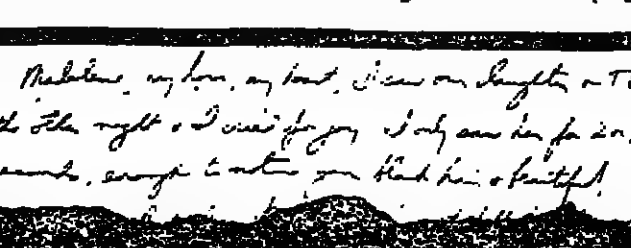 Madeleine, my love, my heart, I saw our daughter on T
the other night & I cried for joy. I only saw her for a
seconds, enough to notice your black hair & beautiful